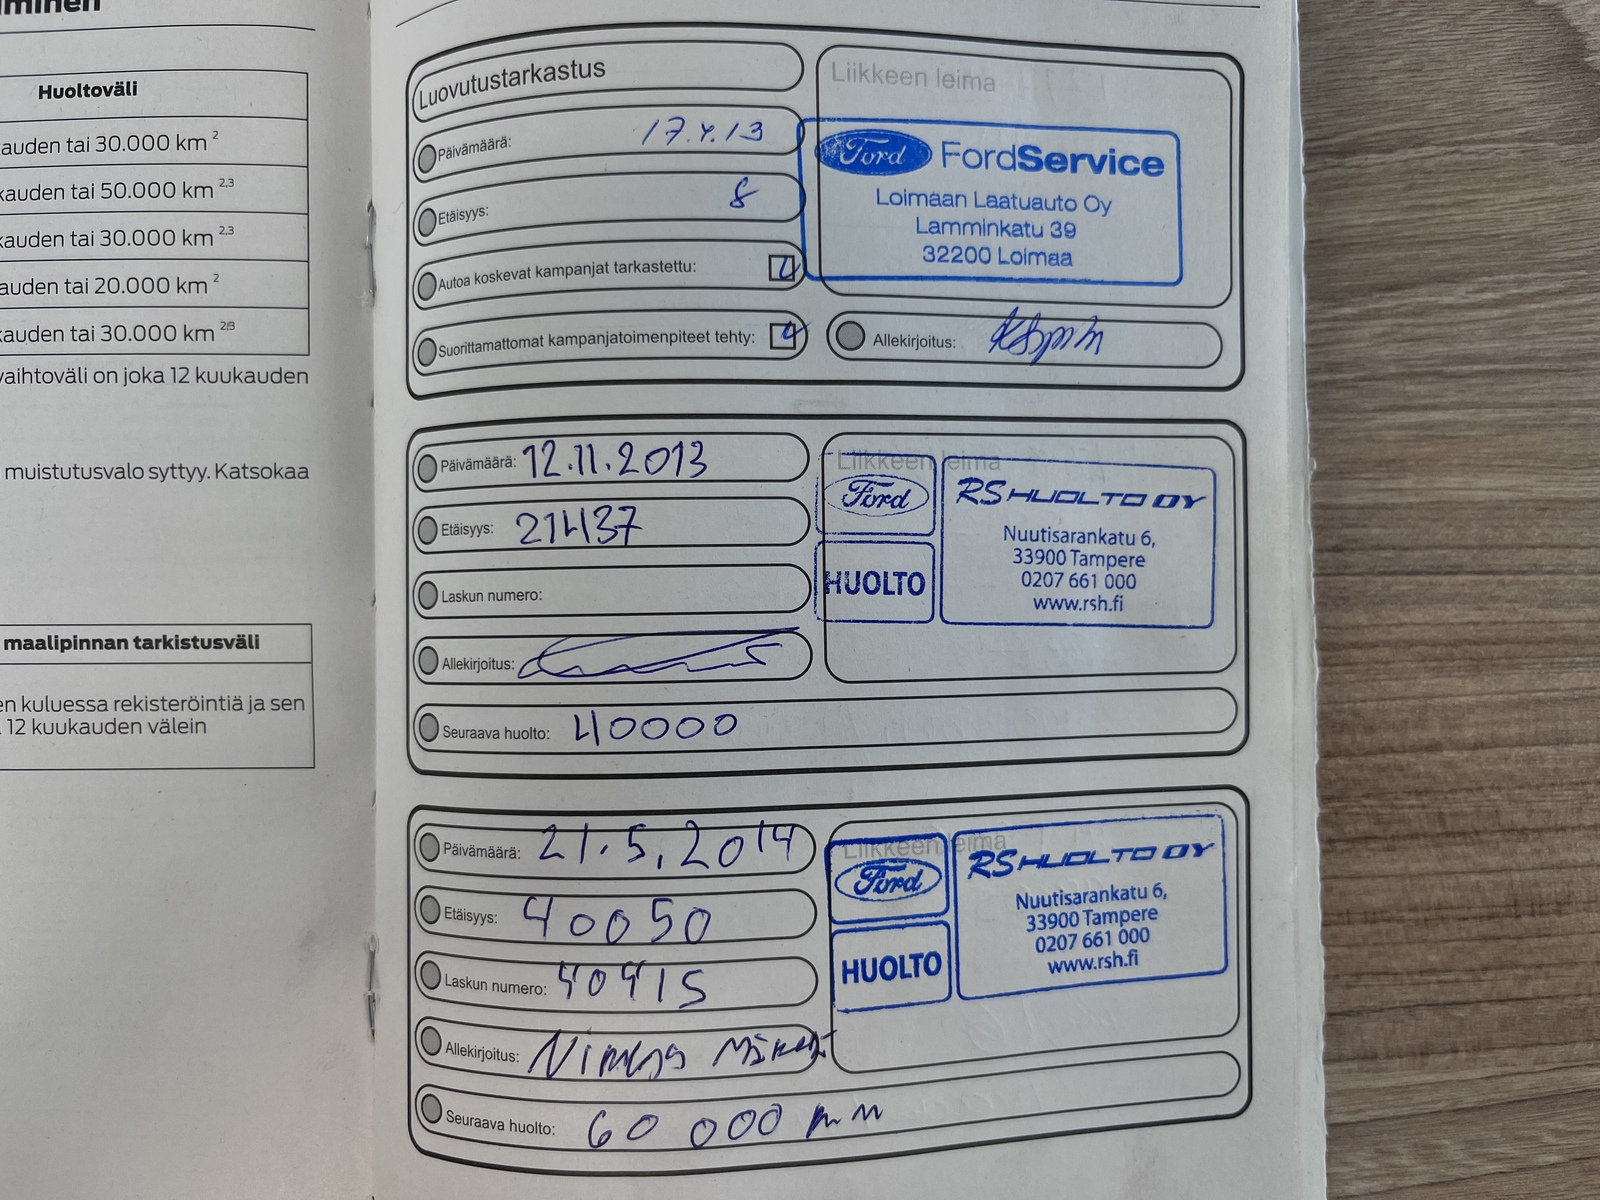 Huoltoväli
auden tai 30.000 km 2
kauden tai 50.000 km 2,3
kauden tai 30.000 km 2,3
auden tai 20.000 km 2
kauden tai 30.000 km 2,3
vaihtoväli on joka 12 kuukauden
muistutusvalo syttyy. Katsokaa
maalipinnan tarkistusväli
en kuluessa rekisteröintiä ja sen
12 kuukauden välein
Luovutustarkastus
Päivämäärä: 17.4.13
Etäisyys: 8
Autoa koskevat kampanjat tarkastettu:
Suorittamattomat kampanjatoimenpiteet tehty:
Liikkeen leima
Ford FordService
Loimaan Laatuauto Oy
Lamminkatu 39
32200 Loimaa
Allekirjoitus:
Päivämäärä: 12.11.2013
Etäisyys: 21437
Laskun numero:
Allekirjoitus:
Seuraava huolto: 40000
Liikkeen leima
Ford
HUOLTO
RS HUOLTO OY
Nuutisarankatu 6,
33900 Tampere
0207 661 000
www.rsh.fi
Päivämäärä: 21.5.2014
Etäisyys: 40050
Laskun numero: 40415
Allekirjoitus:
Seuraava huolto: 60 000
Liikkeen leima
Ford
HUOLTO
RS HUOLTO OY
Nuutisarankatu 6,
33900 Tampere
0207 661 000
www.rsh.fi